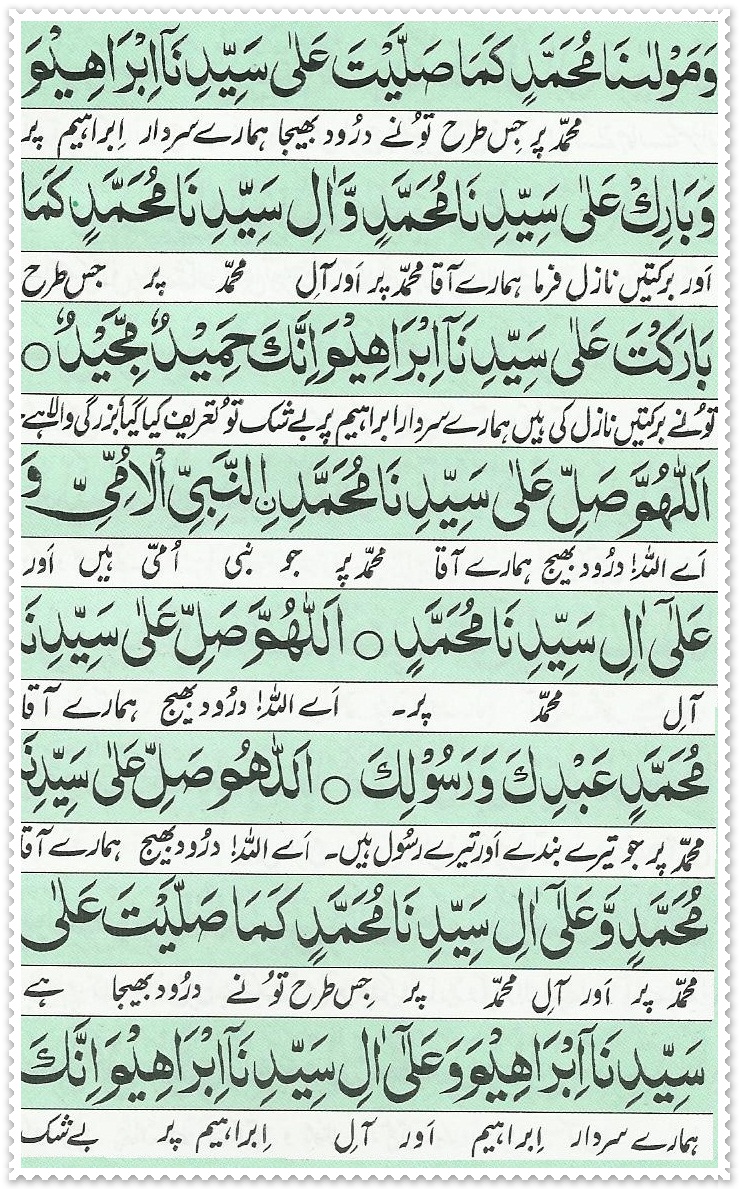 وَمَوْلٰىنَا مُحَمَّدٍ كَمَا صَلَّيْتَ عَلٰى سَيِّدِنَآ اِبْرَاهِيْمَ
محمّد پر جِس طرح توُنے درُود بھیجا ہمارے سردار اِبراہیم پر
وَبَارِكْ عَلٰى سَيِّدِنَا مُحَمَّدٍ وَّاٰلِ سَيِّدِنَا مُحَمَّدٍ كَمَا
اَور برکتیں نازل فرما ہمارے آقا محمّد پر اَور آلِ محمّد پر جِس طرح
بَارَكْتَ عَلٰى سَيِّدِنَآ اِبْرَاهِيْمَ اِنَّكَ حَمِيْدٌ مَّجِيْدٌ ○
توُنے برکتیں نازل کی ہیں ہمارے سردار ابراہیم پر بے شک توُ تعریف کیا گیا بُزرگی والا ہے۔
اَللّٰهُمَّ صَلِّ عَلٰى سَيِّدِنَا مُحَمَّدِنِ النَّبِيِّ الْاُمِّيِّ وَ
اَے اللہ! درُود بھیج ہمارے آقا محمّد پر جو نبی اُمّی ہیں اَور
عَلٰٓى اٰلِ سَيِّدِنَا مُحَمَّدٍ ○ اَللّٰهُمَّ صَلِّ عَلٰى سَيِّدِنَا
آلِ محمّد پر۔ اَے اللہ! درُود بھیج ہمارے آقا
مُحَمَّدٍ عَبْدِكَ وَرَسُوْلِكَ ○ اَللّٰهُمَّ صَلِّ عَلٰى سَيِّدِنَا
محمّد پر جو تیرے بندے اَور تیرے رسُول ہیں۔ اَے اللہ! درُود بھیج ہمارے آقا
مُحَمَّدٍ وَّعَلٰٓى اٰلِ سَيِّدِنَا مُحَمَّدٍ كَمَا صَلَّيْتَ عَلٰى
محمّد پر اَور آلِ محمّد پر جِس طرح توُنے درُود بھیجا ہے
سَيِّدِنَآ اِبْرَاهِيْمَ وَعَلٰٓى اٰلِ سَيِّدِنَآ اِبْرَاهِيْمَ اِنَّكَ
ہمارے سردار اِبراہیم اَور آلِ اِبراہیم پر بے شک